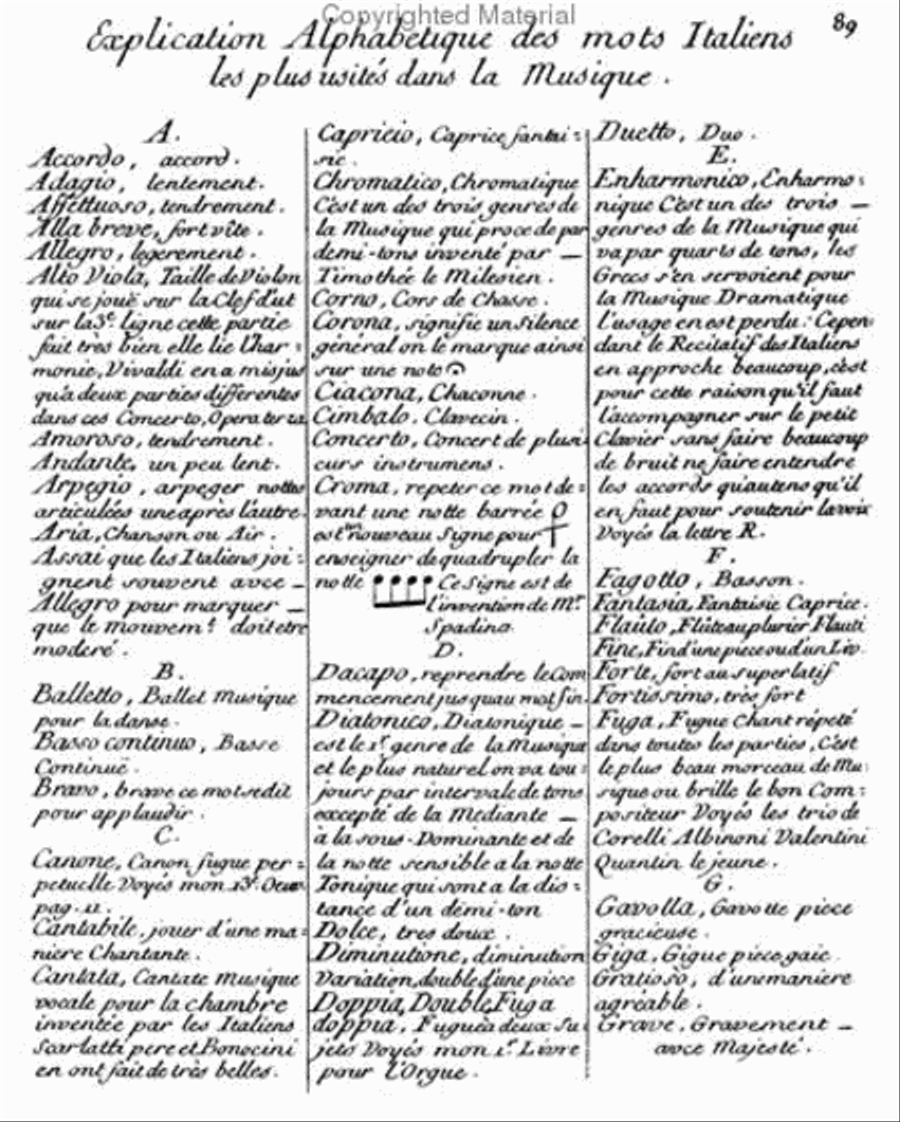 Copyrighted Material
89
Explication Alphabetique des mots Italiens
les plus usités dans la Musique.
A.
Accordo, accord.
Adagio, lentement.
Affettuoso, tendrement.
Alla breve, fort vîte.
Allegro, legerement.
Alto Viola, Taille de Violon
qui se jouë sur la Clef d'ut
sur la 3e. ligne cette partie
fait très bien elle lie l'har=
monie, Vivaldi en a mis jus
qu'a deux parties differentes
dans ces Concerto, Opera terza
Amoroso, tendrement.
Andante, un peu lent.
Arpegio, arpeger nottes
articulées une après l'autre.
Aria, Chanson ou Air.
Assai que les Italiens joi=
gnent souvent avec —
Allegro pour marquer —
que le mouvem.t doit etre
moderé.
B.
Balletto, Ballet musique
pour la danse.
Basso continuo, Basse
Continuë.
Bravo, brave ce mot se dit
pour applaudir.
C.
Canone, Canon fugue per=
petuelle Voyés mon 13e. Oeuv
pag. 11.
Cantabile, jouer d'une ma=
niere Chantante.
Cantata, Cantate musique
vocale pour la chambre
inventée par les Italiens
Scarlatti pere et Bonocini
en ont fait de très belles.
Capricio, Caprice fantai=
sie.
Chromatico, Chromatique
C'est un des trois genres de
la Musique qui procede par
demi-tons inventé par —
Timothée le Milesien.
Corno, Cors de chasse.
Corona, signifie un Silence
général on le marque ainsi
sur une note
Ciacona, Chaconne.
Cimbalo, Clavecin.
Concerto, Concert de plusi
eurs instrumens.
Croma, repeter ce mot de=
vant une notte barrée
est nouveau Signe pour
enseigner de quadrupler la
notte Ce Signe est de
l'invention de Mr.
Spadina.
D.
Dacapo, reprendre le Com
mencement jusquau mot fin.
Diatonico, Diatonique —
est le 1r. genre de la Musique
et le plus naturel on va tou=
jours par intervale de tons
excepté de la Mediante —
à la sous-Dominante et de
la notte sensible a la notte
Tonique qui sont a la dis=
tance d'un demi-ton
Dolce, tres doux.
Diminutione, diminution
Variation, double d'une piece
Doppia, Double, Fuga
doppia, Fugue a deux Su
jets Voyés mon 1r. Livre
pour l'Orgue.
Duetto, Duo.
E.
Enharmonico, Enharmo=
nique C'est un des trois —
genres de la Musique qui
va par quarts de tons, les
Grecs s'en servoient pour
la Musique Dramatique
l'usage en est perdu: Cepen
dant le Recitatif des Italiens
en approche beaucoup, c'est
pour cette raison qu'il faut
l'accompagner sur le petit
Clavier sans faire beaucoup
de bruit ne faire entendre
les accords qu'autens qu'il
en faut pour soutenir la voix
Voyés la lettre R.
F.
Fagotto, Basson.
Fantasia, Fantaisie Caprice.
Flauto, Flûte au plurier Flauti
Fine, Fin d'une piece ou d'un Liv.
Forte, fort au superlatif
Fortissimo, très fort
Fuga, Fugue Chant répeté
dans toutes les parties, C'est
le plus beau morceau de Mu=
sique ou brille le bon Com=
positeur Voyés les trio de
Corelli Albinoni Valentini
Quantin le jeune.
G.
Gavotta, Gavotte piece
gracieuse.
Giga, Gigue piece gaie.
Gratioso, d'une maniere
agréable.
Grave, Gravement —
avec Majesté.